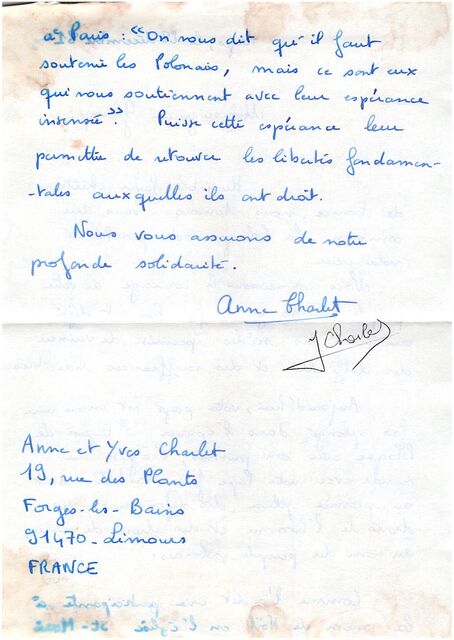 à Paris : "On nous dit qu'il faut
soutenir les Polonais, mais ce sont eux
qui nous soutiennent avec leur espérance
insensée". Puisse cette espérance leur
permettre de retrouver les libertés fondamen-
tales auxquelles ils ont droit.
Nous vous assurons de notre
profonde solidarité.
Anne Charlet
YCharlet
Anne et Yves Charlet
19, rue des Plants
Forges-les-Bains
91470-Limours
FRANCE